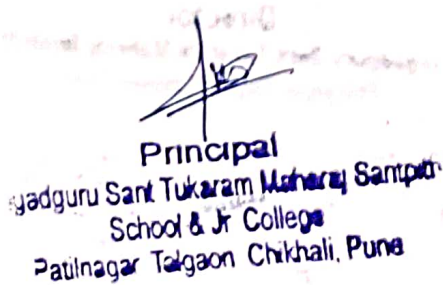 Principal
yadguru Sant Tukaram Maharaj Santpith
School & Jr College
Patilnagar Talgaon Chikhali, Pune